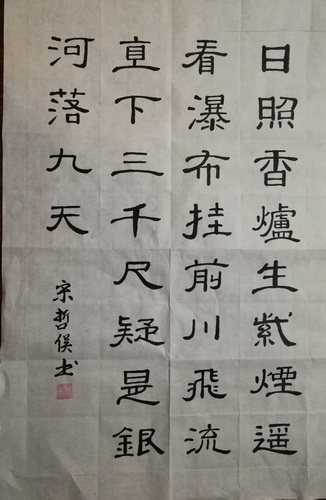 日照香爐生紫煙遥
看瀑布挂前川飛流
直下三千尺疑是銀
河落九天
宋哲俣书